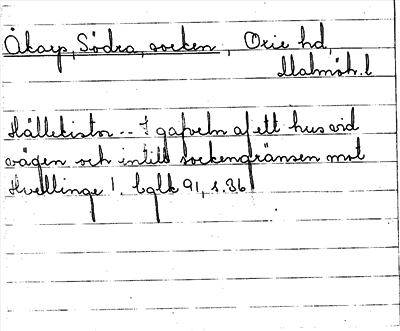 Åkarp, Södra, socken, Oxie hd,
Malmöh. l
Hällekistor -- I gafveln af ett hus vid
vägen och intill sockengränsen mot
Hvellinge!. Cglk 91, s. 36